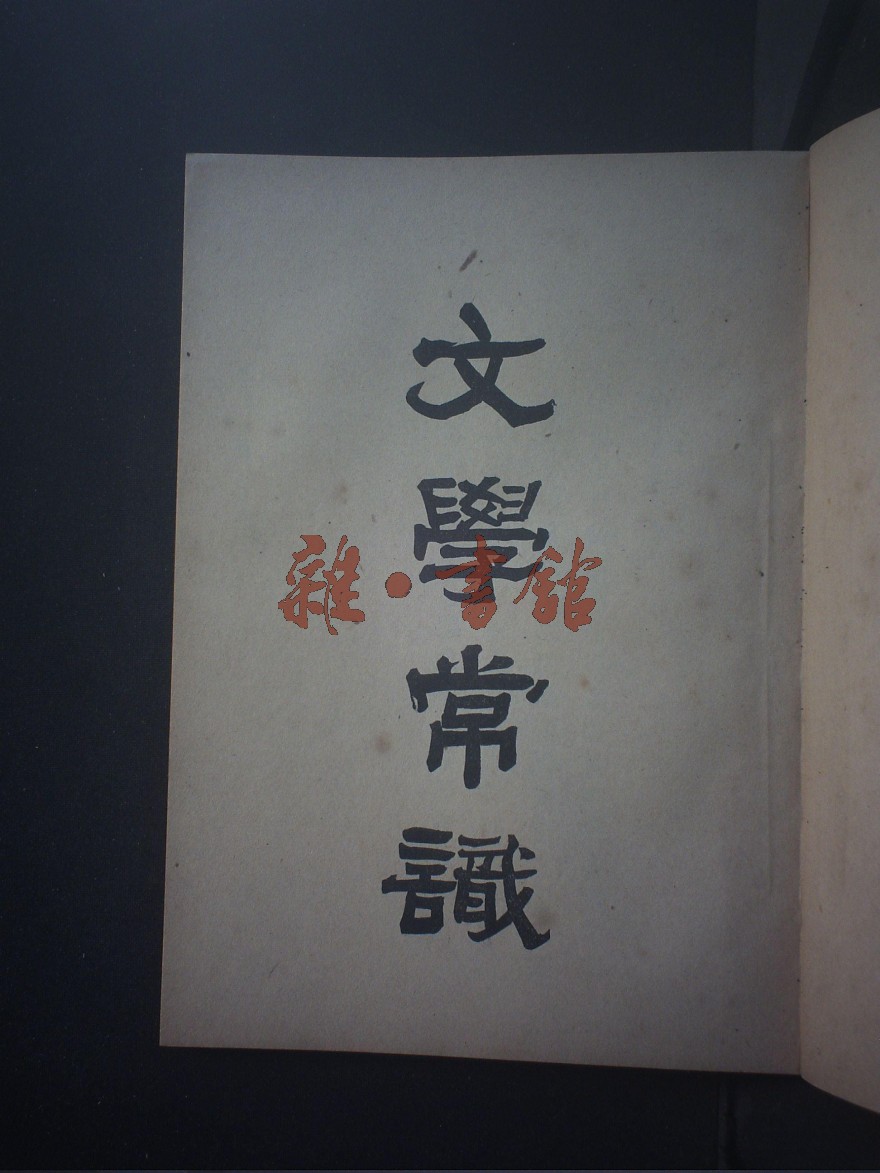 文學常識
雜·書館